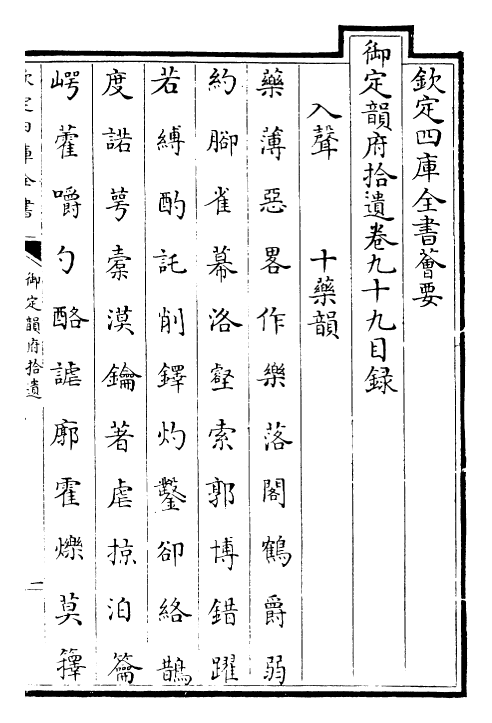 欽定四庫全書薈要
御定韻府拾遺卷九十九目録
入聲　十藥韻
藥薄惡畧作樂落閣鶴爵弱
約腳雀幕洛壑索郭博錯躍
若縛酌託削鐸灼鑿卻絡鵲
度諾萼橐漠鑰著虐掠泊籥
崿藿嚼勺酪謔廓霍爍莫籜
欽定四庫全書
御定韻府拾遺